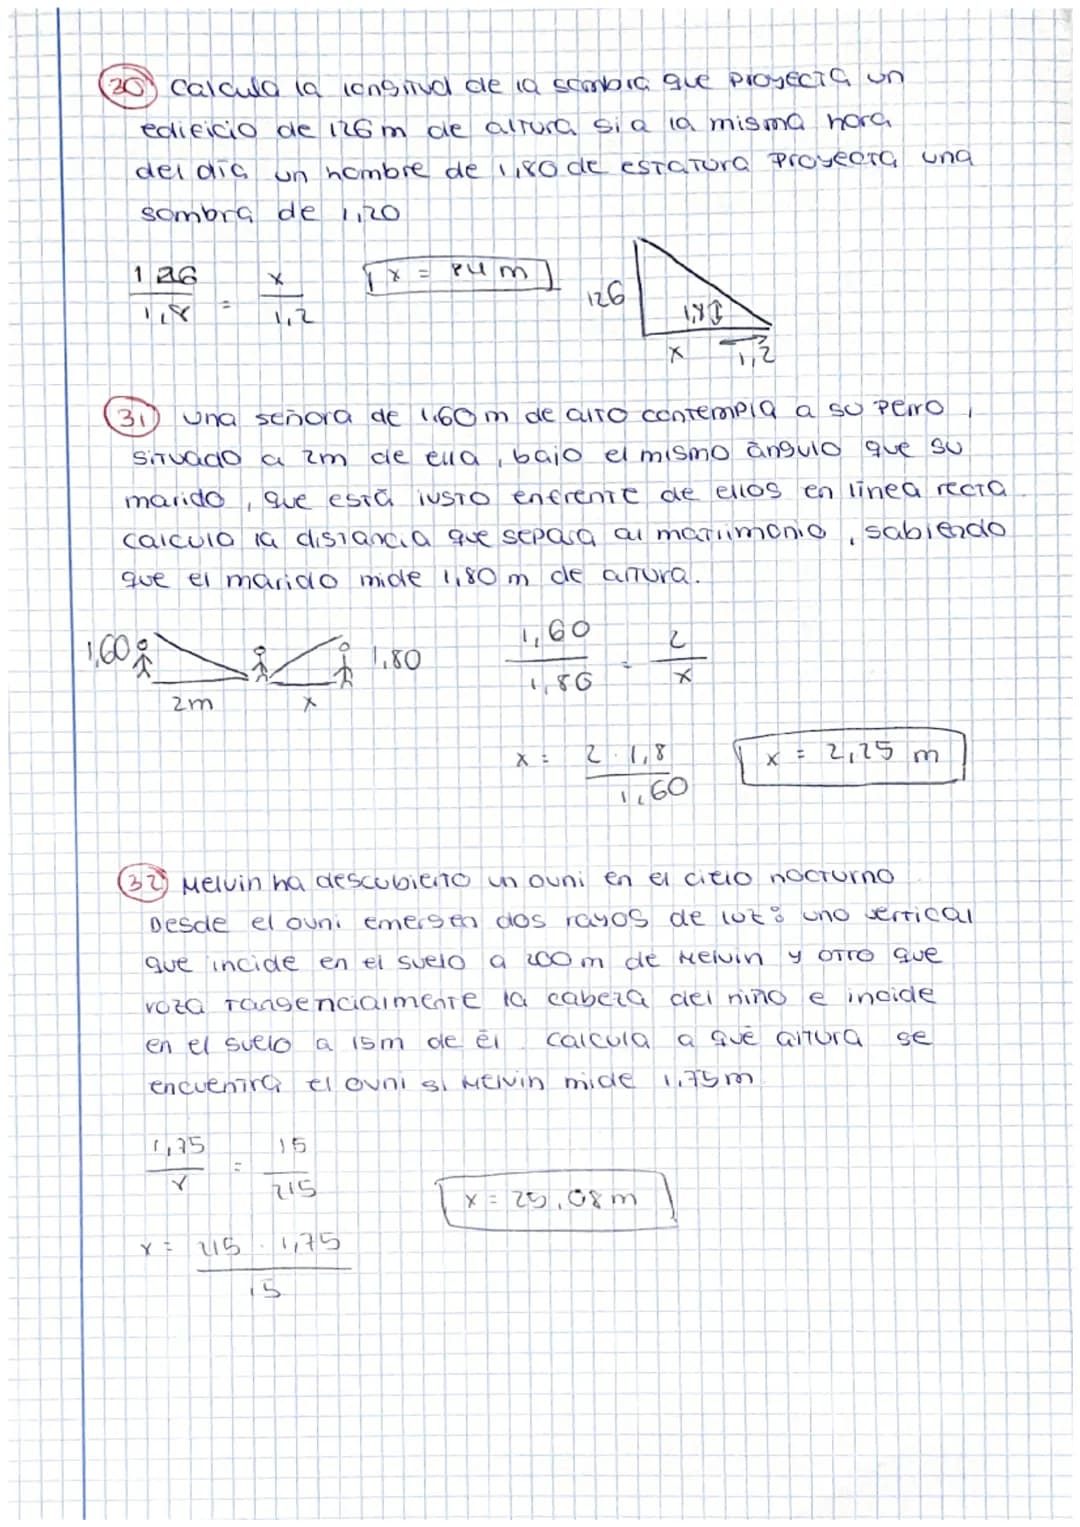 30 Calcula la longitud de la sombra que proyecta un
edificio de 126m de altura si a la misma hora
del día un hombre de 1,80 de estatura proyecta una
sombra de 1,20
126/1,8 = x/1,2 x = 84 m
126 1,8 x 1,2
31 una señora de 1,60 m de alto contempla a su perro,
situado a 2m de ella, bajo el mismo ángulo que su
marido, que está justo enfrente de ellos en línea recta
calcula la distancia que separa al matrimonio, sabiendo
que el marido mide 1,80 m de altura.
1,60 2m x 1,80 1,60/1,80 = 2/x
x = 2 · 1,8/1,60 x = 2,25 m
32 Melvin ha descubierto un ovni en el cielo nocturno
Desde el ovni emergen dos rayos de luz: uno vertical
que incide en el suelo a 200m de Melvin y otro que
roza tangencialmente la cabeza del niño e incide
en el suelo a 15m de él. calcula a qué altura se
encuentra el ovni si Melvin mide 1,75m
1,75/x = 15/215
x = 215 · 1,75/15 x = 25,08 m